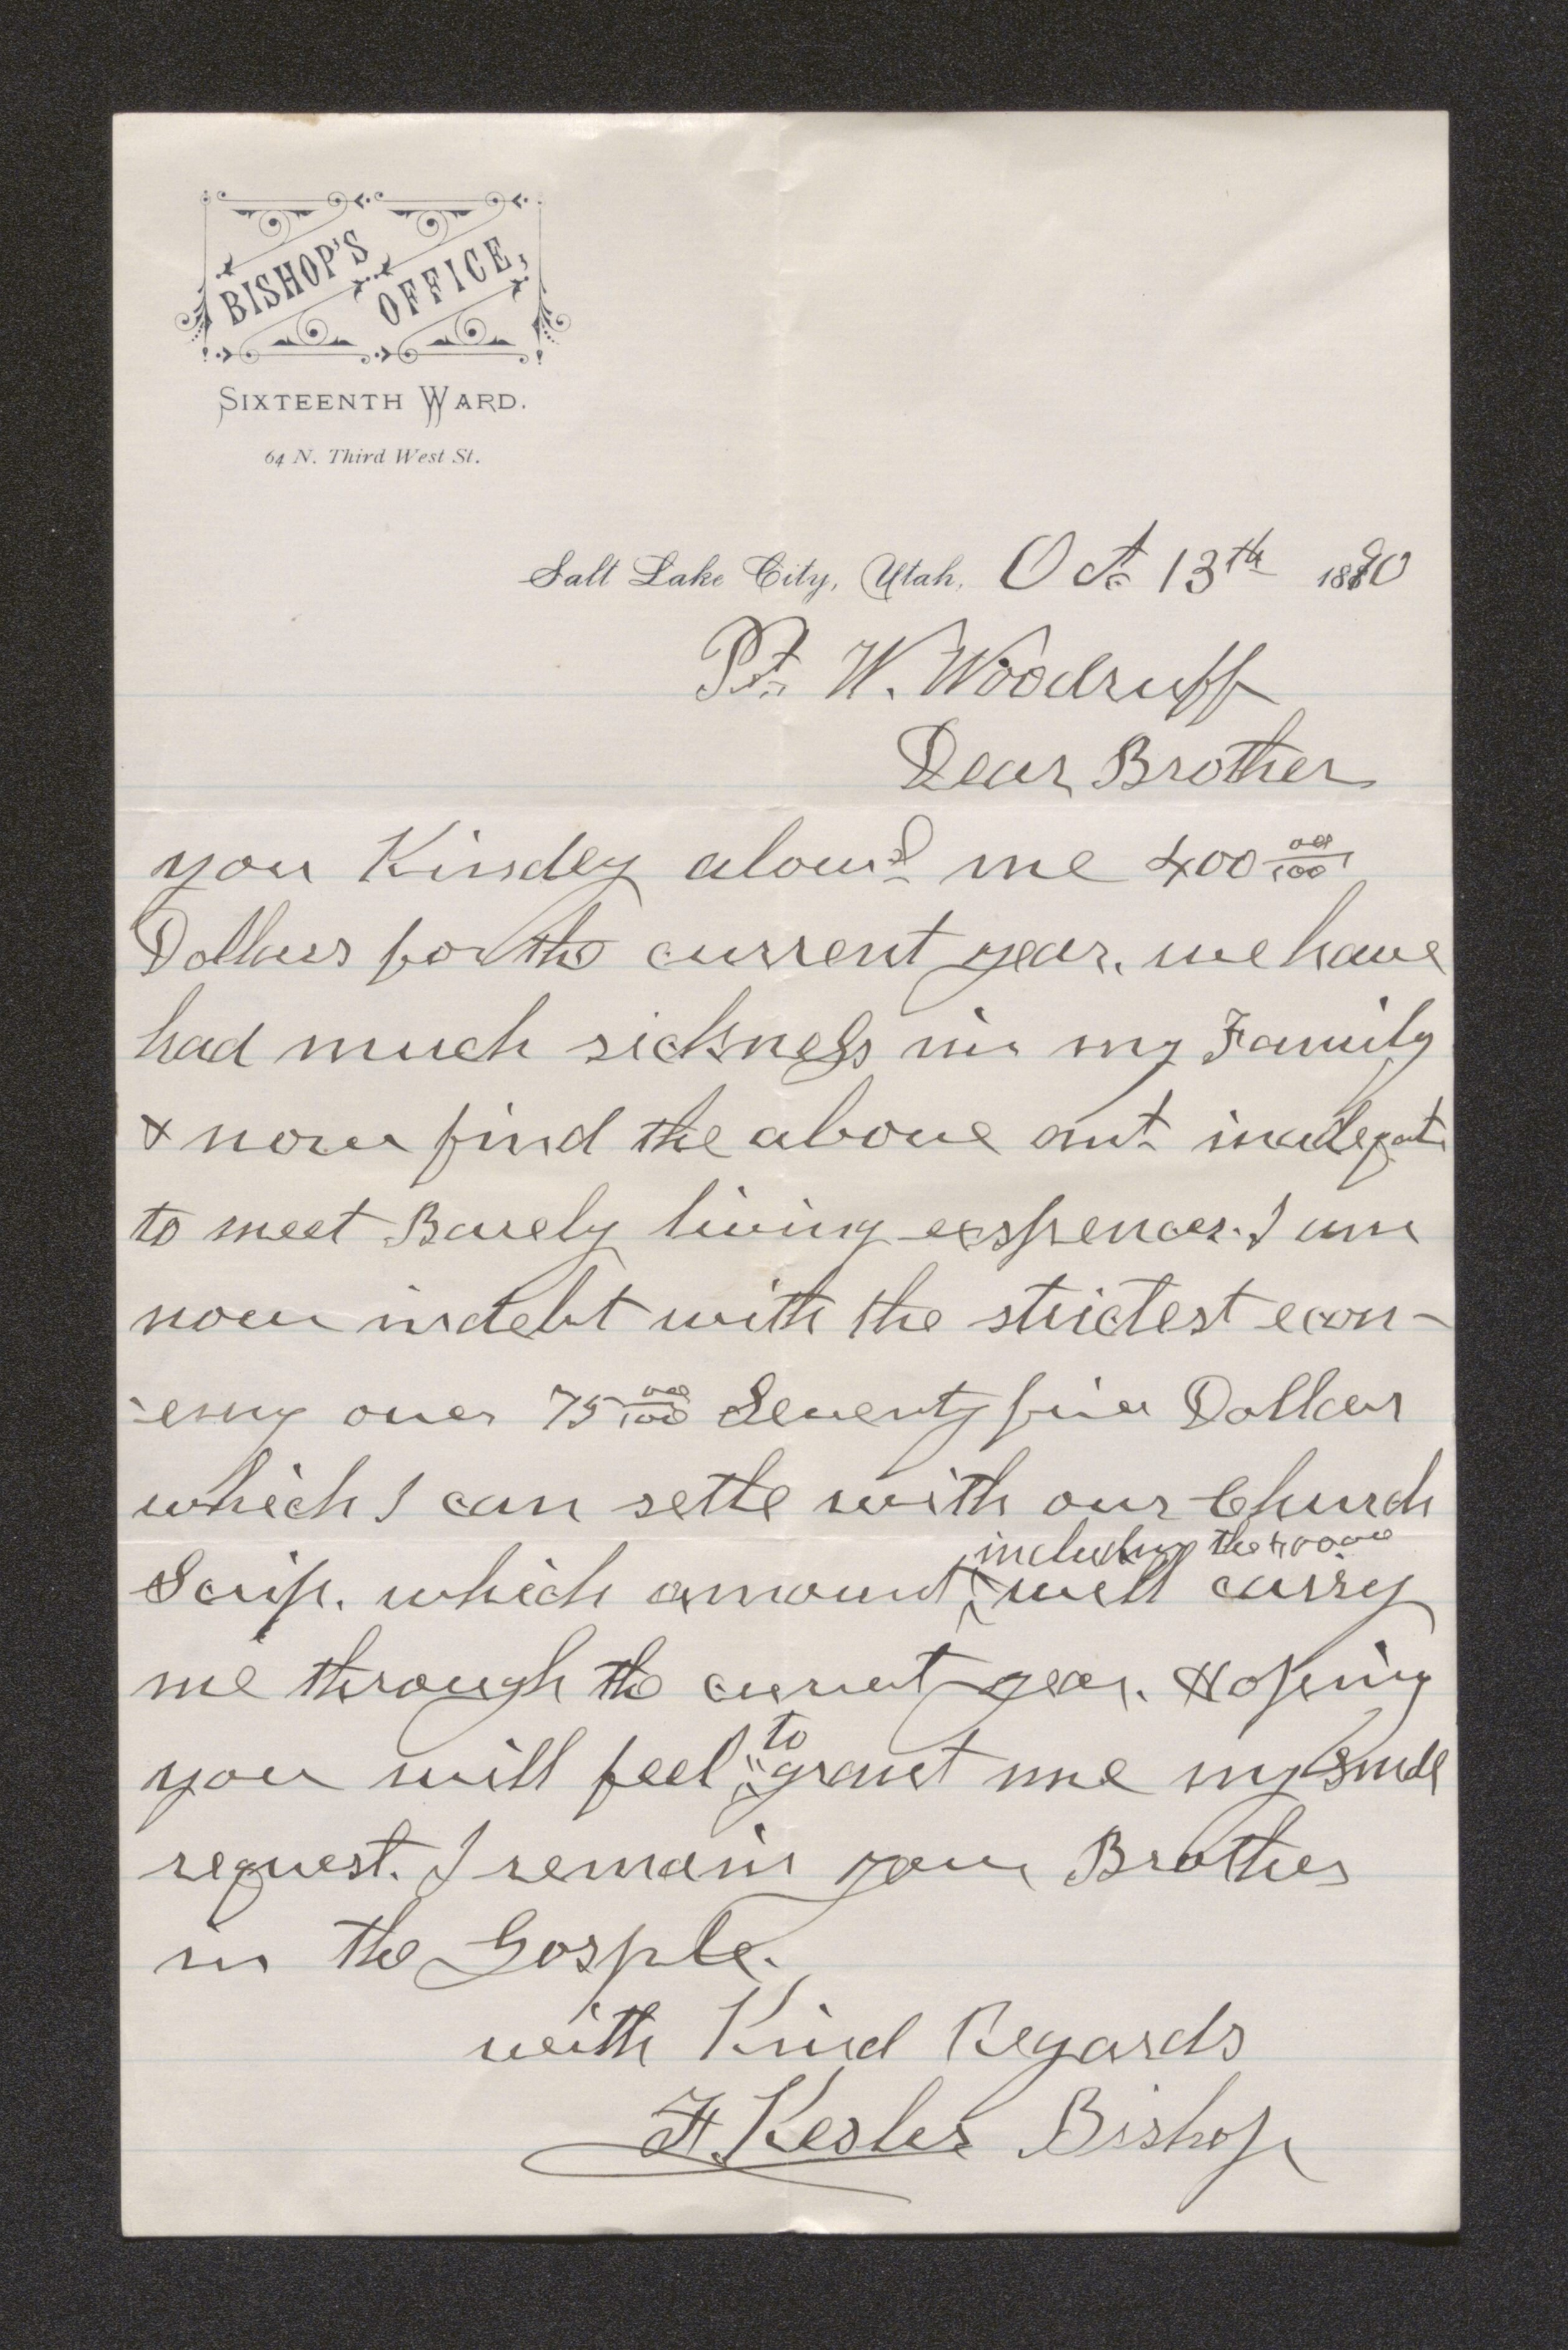 BISHOP'S OFFICE,
SIXTEENTH WARD.
64 N. Third West St.
Salt Lake City, Utah, Oct. 13th 1890
Pt. W. Woodruff
Dear Brother
you Kindey alowd me 400 00/100
Dollars for the current year. we have
had much sickness in my Family
& now find the above amt inadequate
to meet Barely living exspences. I am
now in debt with the strictest econ-
-emy over 75 00/100 Seventy five Dollars
which I can settle with our Church
Scrip. which amount
including the 400 00
will carry
me through the current year. Hoping
you will feel to grant me my small
request. I remain your Brother
in the Gosple.
with Kind Regards
F. Kesler Bishop